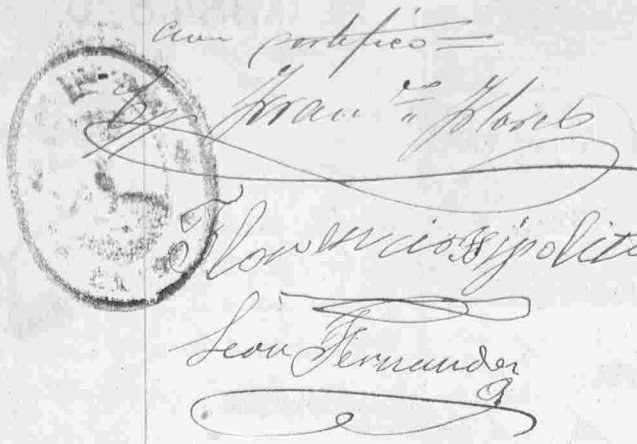 que certifico=
Fran.co Flores
Florencio Hipolito
Leon Fernandez